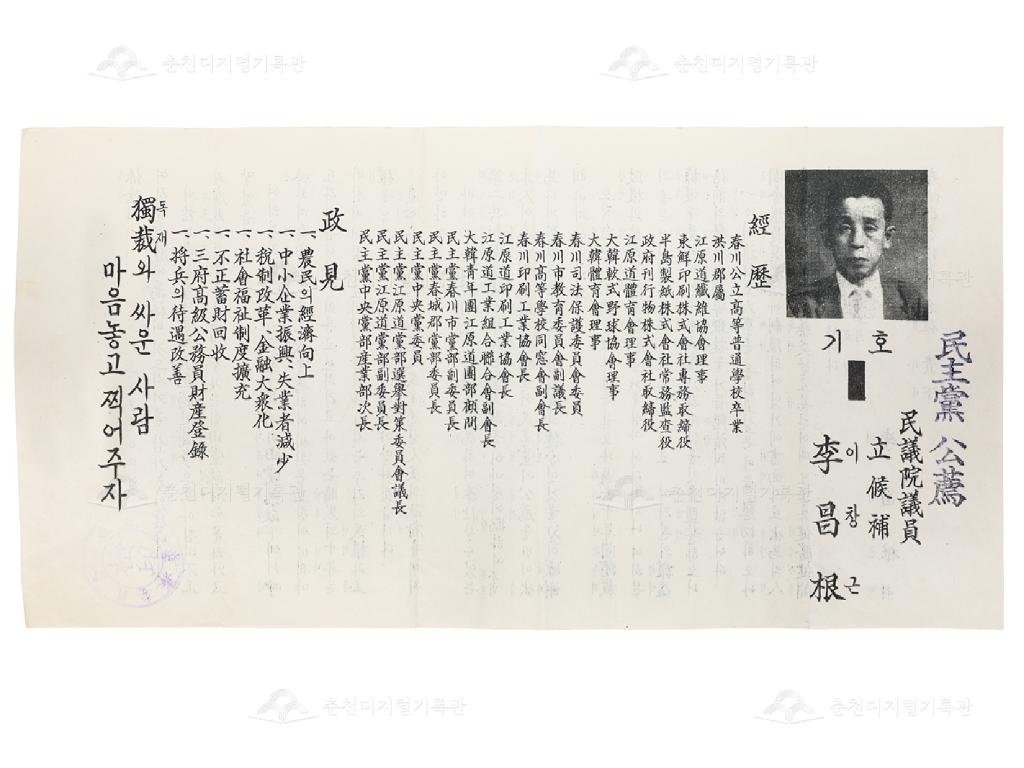 民主黨 公薦
民議院議員
立候補
호
기
이창근
李昌根
經歷
春川公立高等普通學校卒業
洪川郡屬
江原道纖維協會理事
東鮮印刷株式會社專務取締役
半島製紙株式會社常務監査役
政府刊行物株式會社取締役
江原道體育會理事
大韓軟式野球協會理事
大韓體育會理事
春川司法保護委員會委員
春川市教育委員會副議長
春川高等學校同窓會副會長
春川印刷工業協會長
江原道印刷工業協會長
江原道工業組合聯合會副會長
大韓青年團江原道團部顧問
民主黨春川市黨部副委員長
民主黨春城郡黨部委員長
民主黨中央黨委員
民主黨江原道黨部選擧對策委員會議長
民主黨江原道黨部副委員長
民主黨中央黨部産業部次長
政見
一、農民의 經濟向上
一、中小企業振興、失業者減少
一、稅制改革、金融大衆化
一、社會福祉制度擴充
一、不正蓄財回收
一、三府高級公務員財産登錄
一、將兵의 待遇改善
독재
獨裁와 싸운 사람
마음놓고 찍어주자
춘천디지털기록관
춘천디지털기록관
춘천디지털기록관
춘천디지털기록관
춘천디지털기록관